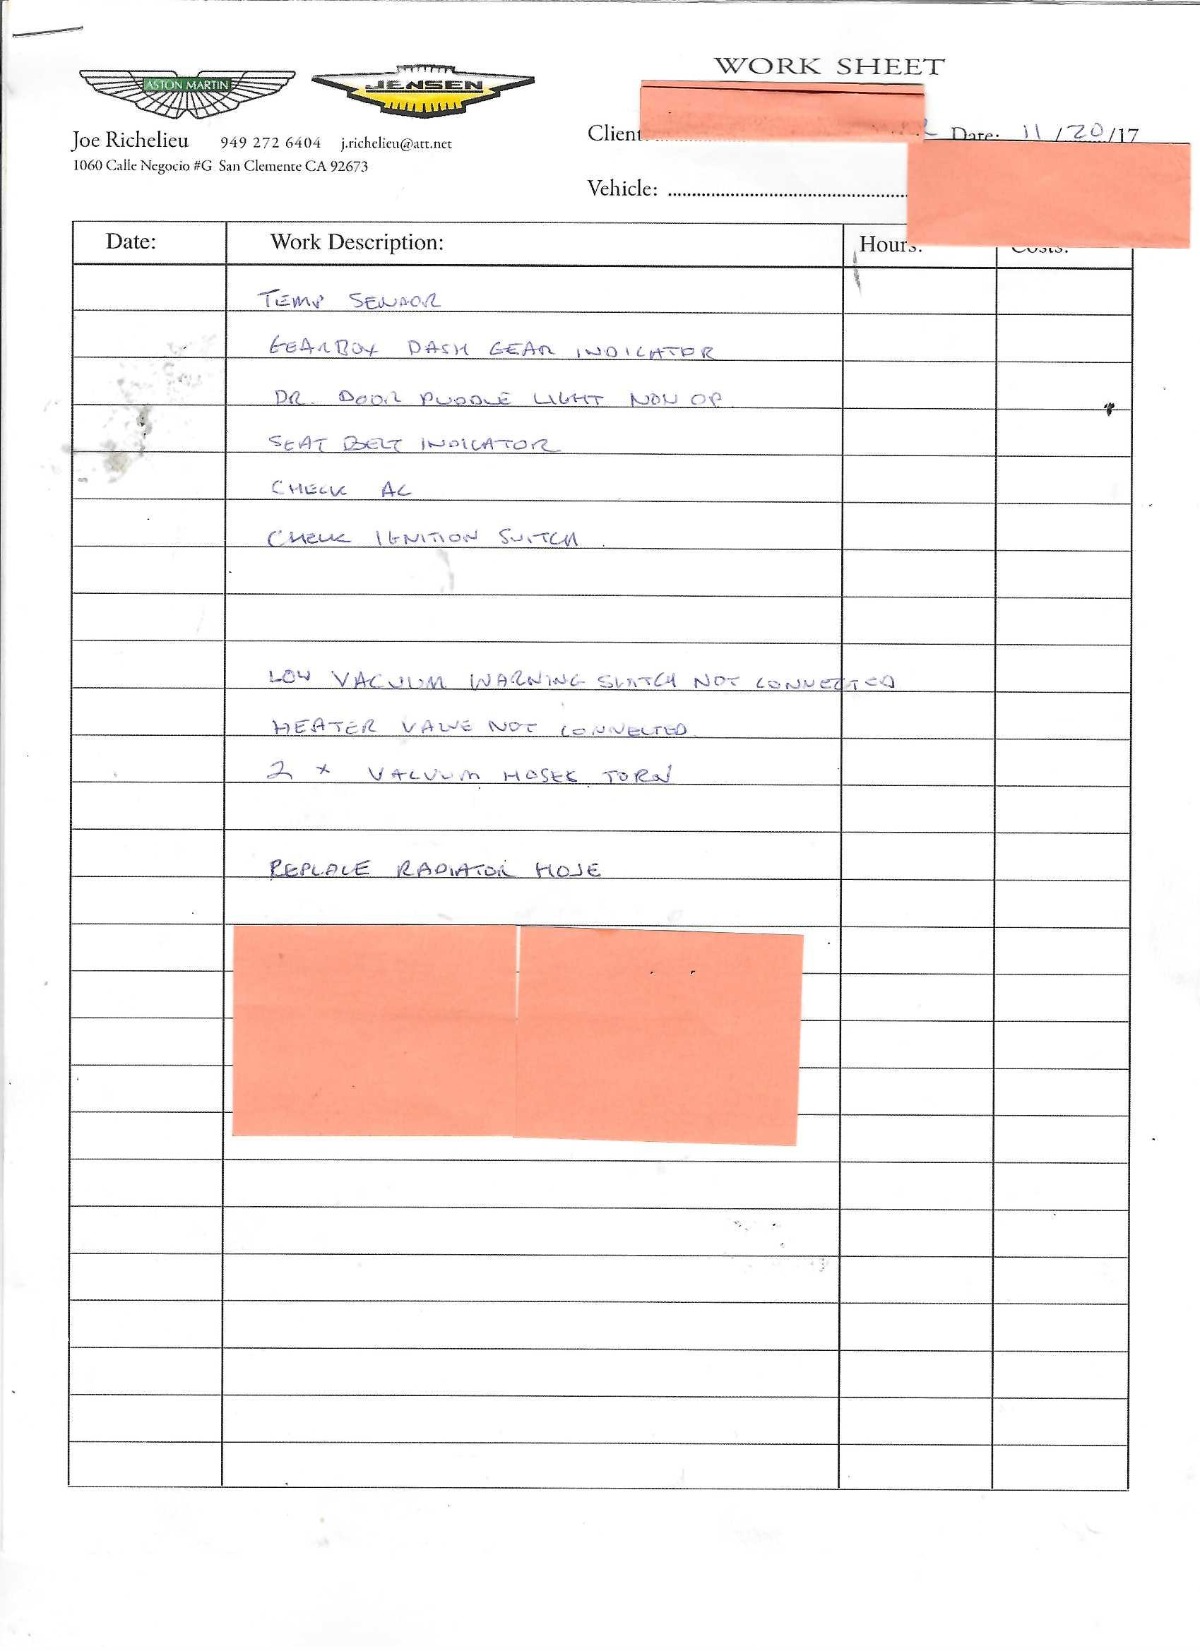 WORK SHEET
ASTON MARTIN
JENSEN
Client
Date: 11/20/17
Joe Richelieu 949 272 6404 j.richelieu@att.net
1060 Calle Negocio #G San Clemente CA 92673
Vehicle:
Date: Work Description: Hours: Costs:
TEMP SENSOR
GEARBOX DASH GEAR INDICATOR
DR. DOOR PUDDLE LIGHT NON OP
SEAT BELT INDICATOR
CHECK AC
CHECK IGNITION SWITCH.
LOW VACUUM WARNING SWITCH NOT CONNECTED
HEATER VALVE NOT CONNECTED.
2 x VACUUM HOSES TORN
REPLACE RADIATOR HOSE